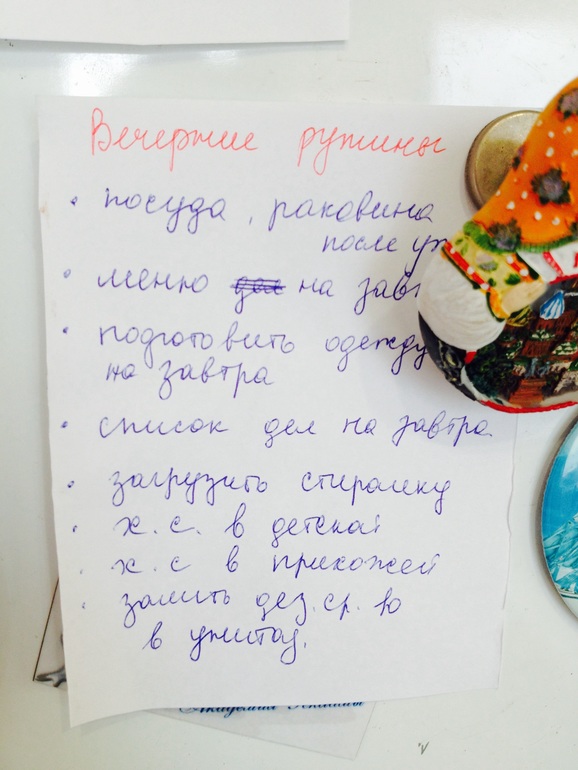 Вечерние рутины
• посуда, раковина
после
• меню на
• подготовить одежду
на завтра
• список дел на завтра.
• загрузить стиралку
• х.с. в детской
• х.с в прихожей
• залить дез.ср.-ю
в унитаз.
Академия